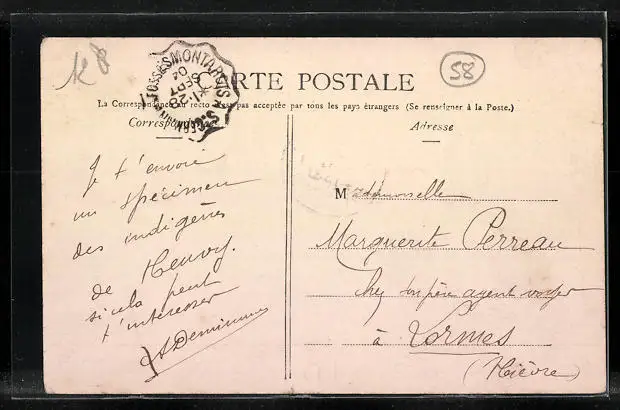 58
CARTE POSTALE
La Correspondance au recto n'est pas acceptée par tous les pays étrangers (Se renseigner à la Poste.)
Correspondance
Adresse
MONTARGIS
SEPT
04
Je t'envoie
un spécimen
des indigènes
de Neuvy.
si cela peut
t'intéresser
Mademoiselle
Marguerite Perreau
Chez son père agent voyer
à Lormes
(Nièvre)